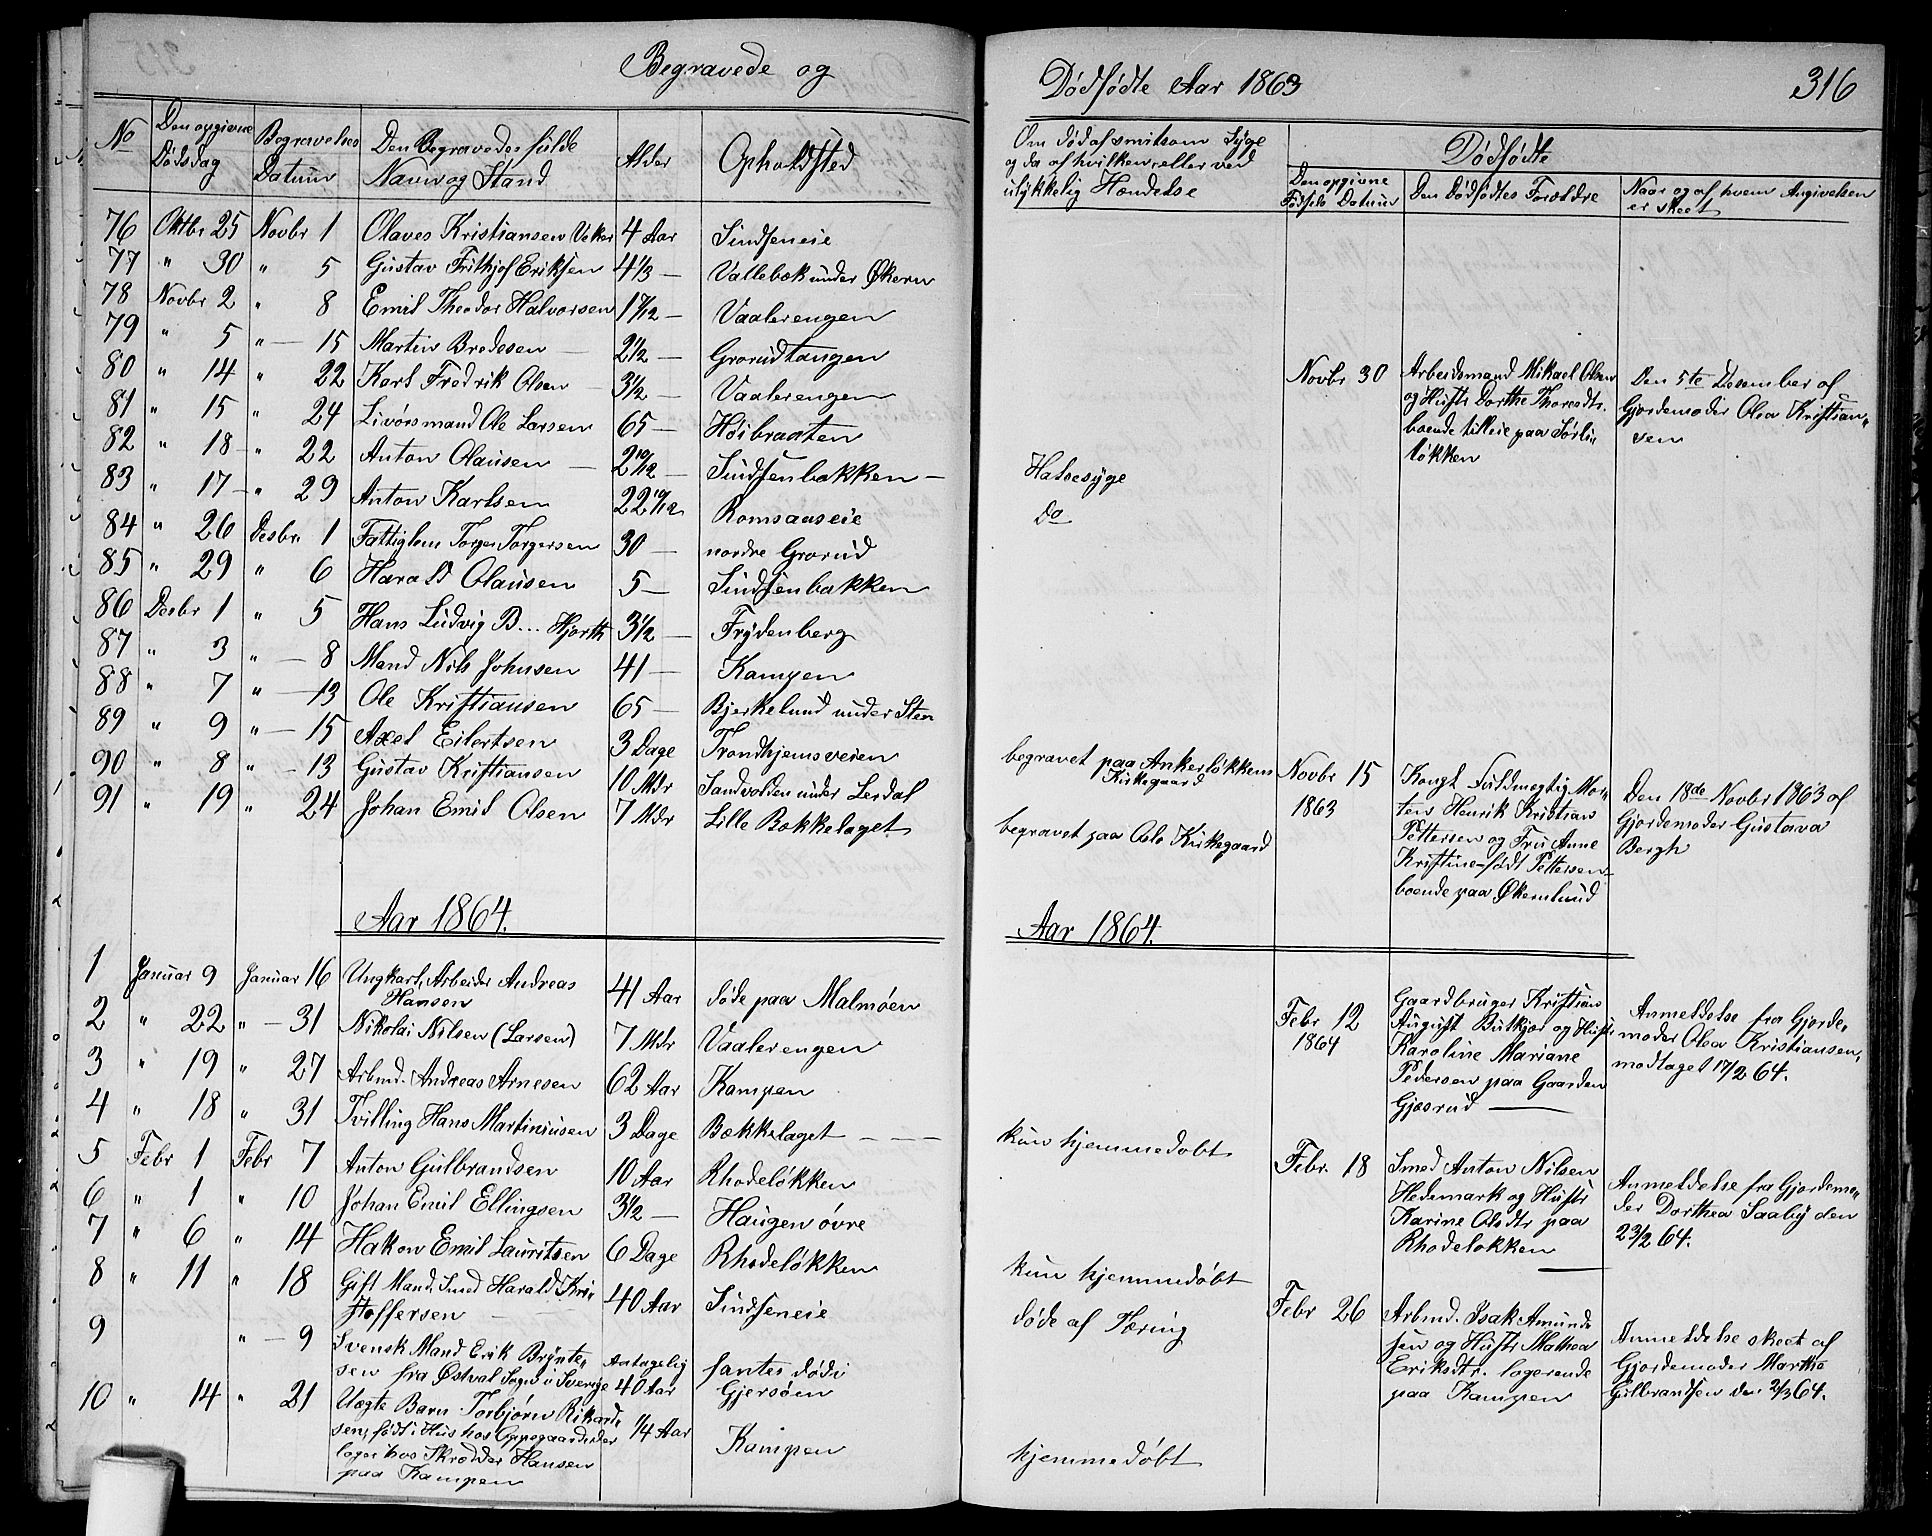 Begravede og
No
Den opgivne Dødsdag
Begravelses Datum
Den Begravedes fulde Navn og Stand
Alder
Opholdsted
76 Oktbr 25 Novbr 1 Olaves Kristiansen Veker 4 Aar Sindseneie
77 " 30 " 5 Gustav Frithjof Eriksen 4 1/3 — Vallebæk under Økern
78 Novbr 2 " 8 Emil Theodor Halvorsen 1 7/12 — Vaalerengen
79 " 5 " — 15 Martin Bredesen — 2 1/2 — Grorudtangen
80 " 14 " 22 Karl Fredrik Olsen 3 1/2 — Vaalerengen
81 " 15 " 24 Livørsmand Ole Larsen 65 — Høibraaten
82 " 18 — " 22 Anton Olausen — 2 10/12 — Sindsenbakken —
83 " 17 — " 29 Anton Karlsen 22 10/12 Romsaaseie
84 " 26 Desbr. 1 Fattiglem Torger Torgersen 30 — nordre Grorud
85 " 29 " 6 Harald Olausen 5 — Sindsenbakken
86 Desbr 1 " 5 Hans Ludvig B... Hjorth 3 1/2 — Frydenberg
87 " 3 " — 8 Mand Nils Johnsen 41 — Kampen
88 " 7 " — 13 Ole Kristiansen 65 — Bjerkelund under Sten
89 " 9 " — 15 Axel Eilertsen 3 Dage Trondhjemsveien
90 " 8 " — 13 Gustav Kristiansen 10 Mdr Sandvolden under Lerdal
91 " 19 " 24 Johan Emil Olsen 7 Mdr Lille Bækkelaget
Aar 1864.
1 Januar 9 Januar 16 Ungkarl, Arbeider Andreas
Hansen 41 Aar døde paa Malmøen
2 " 22 " — 31 Nikolai Nilsen (Larsen) 7 Mdr Vaalerengen
3 " 19 " 27 Arbmd. Andreas Arnesen 62 Aar Kampen
4 " 18 " 31 Tvilling Hans Martiniusen 3 Dage Bækkelaget — — —
5 Febr 1 Febr 7 Anton Gulbrandsen 10 Aar Rhodeløkken
6 " 1 " 10 Johan Emil Ellingsen 3 1/2 — Haugen øvre
7 " 6 " 14 Hakon Emil Lauritsen 6 Dage Rhodeløkken
8 " 11 " 18 Gift Mand, Smed Harald Kri-
stoffersen — 40 Aar Sindseneie
9 " — 9 Svensk Mand Erik Brynte-
sen fra Østval Sogn i Sverige Antagelig 40 Aar fantes død i Gjersøen
10 " 14 " 21 Uægte Barn Torbjørn Rikard-
sen, født i Hus hos Oppegaard
loger hos Skrædder Hansen
paa Kampen 1/4 Aar Kampen
Dødfødte Aar 1863
316
Om død af smitsom Syge
og da af hvilken, eller ved
ulykkelig Hændelse
Dødfødte
Den opgivne Fødsels Datum
Den Dødfødtes Forældre
Naar og af hvem Angivelsen er skeet
Novbr 30
Arbeidsmand Mikael Olsen
og Hustr Dorthe Thoresdtr.
boende tilleie paa Sørli-
løkken
Den 5te Desember af
Gjordemoder Olea Kristian-
sen
Halsesyge
Do
begravet paa Ankerløkkens
Kirkegaard
begravet paa Oslo Kirkegaard
Novbr 15
1863
Kongl. Fuldmegtig Mor-
ten Henrik Kristian
Pettersen og Fru Anne
Kristine født Pettersen
boende paa Økernlund
Den 18de Novbr 1863 af
Gjordemoder Gustava
Bergh
Aar 1864.
Febr 12
1864
Gaardbruger Kristian
August Butkjær og Hustr
Karoline Mariane
Pedersen paa Gaarden
Gjæsrud —
Anmeldelse fra Gjorde-
moder Olea Kristiansen,
modtaget 17/2 64.
kun hjemmedøbt
Febr. 18
Smed Anton Nilsen
Hedemark og Hustr
Karine Olsdtr paa
Rhodeløkken
Anmeldelse fra Gjordemo-
der Dorthea Saaby den
23/2 64.
kun hjemmedøbt
døde af Tæring
Febr 26
Arbmd. Isak Amund-
sen og Hustr Mathea
Eriksdtr. logerende
paa Kampen
Anmeldelse skeet af
Gjordemoder Marthe
Gulbrandsen den 2/3 64.
hjemmedøbt